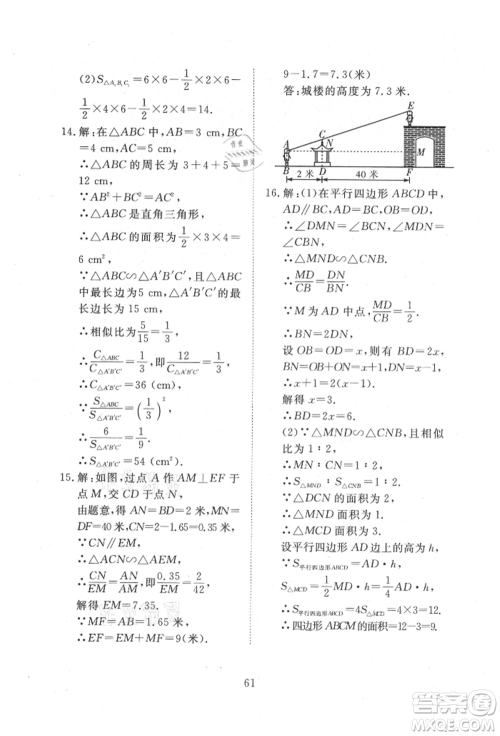 (2)S△A₁B₁C₁=6×6-1/2×2×6-1/2×
2×4-1/2×4×6=14.
14.解:在△ABC中,AB=3 cm,BC
=4 cm,AC=5 cm,
∴△ABC的周长为3+4+5=
12 cm,
∵AB²+BC²=AC²,
∴△ABC是直角三角形,
∴△ABC的面积为1/2×3×4=
6 cm²,
∵△ABC∽△A′B′C′,△A′B′C′
中最长边为15 cm,
∴相似比为5/15=1/3,
∴C△ABC/C△A′B′C′=1/3,即12/C△A′B′C′=1/3,
∴C△A′B′C′=36(cm),
∵S△ABC/S△A′B′C′=(1/3)²,
∴6/S△A′B′C′=1/9,
∴S△A′B′C′=54(cm²).
15.解:如图,过点A作AM⊥EF于
点M,交CD于点N,
由题意,得AN=2米,MN=
DF=40米,CN=2-1.65=0.35(米).
∵CN∥EM,
∴△ACN∽△AEM,
∴CN/EM=AN/AM,即0.35/EM=2/42,
解得EM=7.35.
∵MF=AB=1.65米,
∴EF=EM+MF=9(米).
9-1.7=7.3(米)
答:城楼的高度为7.3米.
E
C
N
A
M
B
D
F
2米
40米
16.解:(1)在平行四边形ABCD中,
AD∥BC,
∴∠DMN=∠BCN,∠MDN
=∠NBC,
∴△MND∽△CNB,
∴MD/CB=DN/BN,
∵M为AD中点,MD/CB=1/2,
∴BN=2DN,
设OB=OD=x,则BD=2x,
∴x+1=2(x-1).
解得x=3.
∴BD=2x=6.
(2)∵△MND∽△CNB,且相似
比为1∶2,
∴MN∶CN=1∶2,
∴S△MND∶S△CND=1∶2,
∵△DCN的面积为2,
∴△MND的面积为1,
∴△MCD的面积为3,
设平行四边形AD边上的高为h,
∵S平行四边形ABCD=AD·h,
S△MCD=1/2MD·h=1/4AD·h,
∴S平行四边形ABCD=4×3=12.
∴四边形ABCM的面积=12-3=9.
61